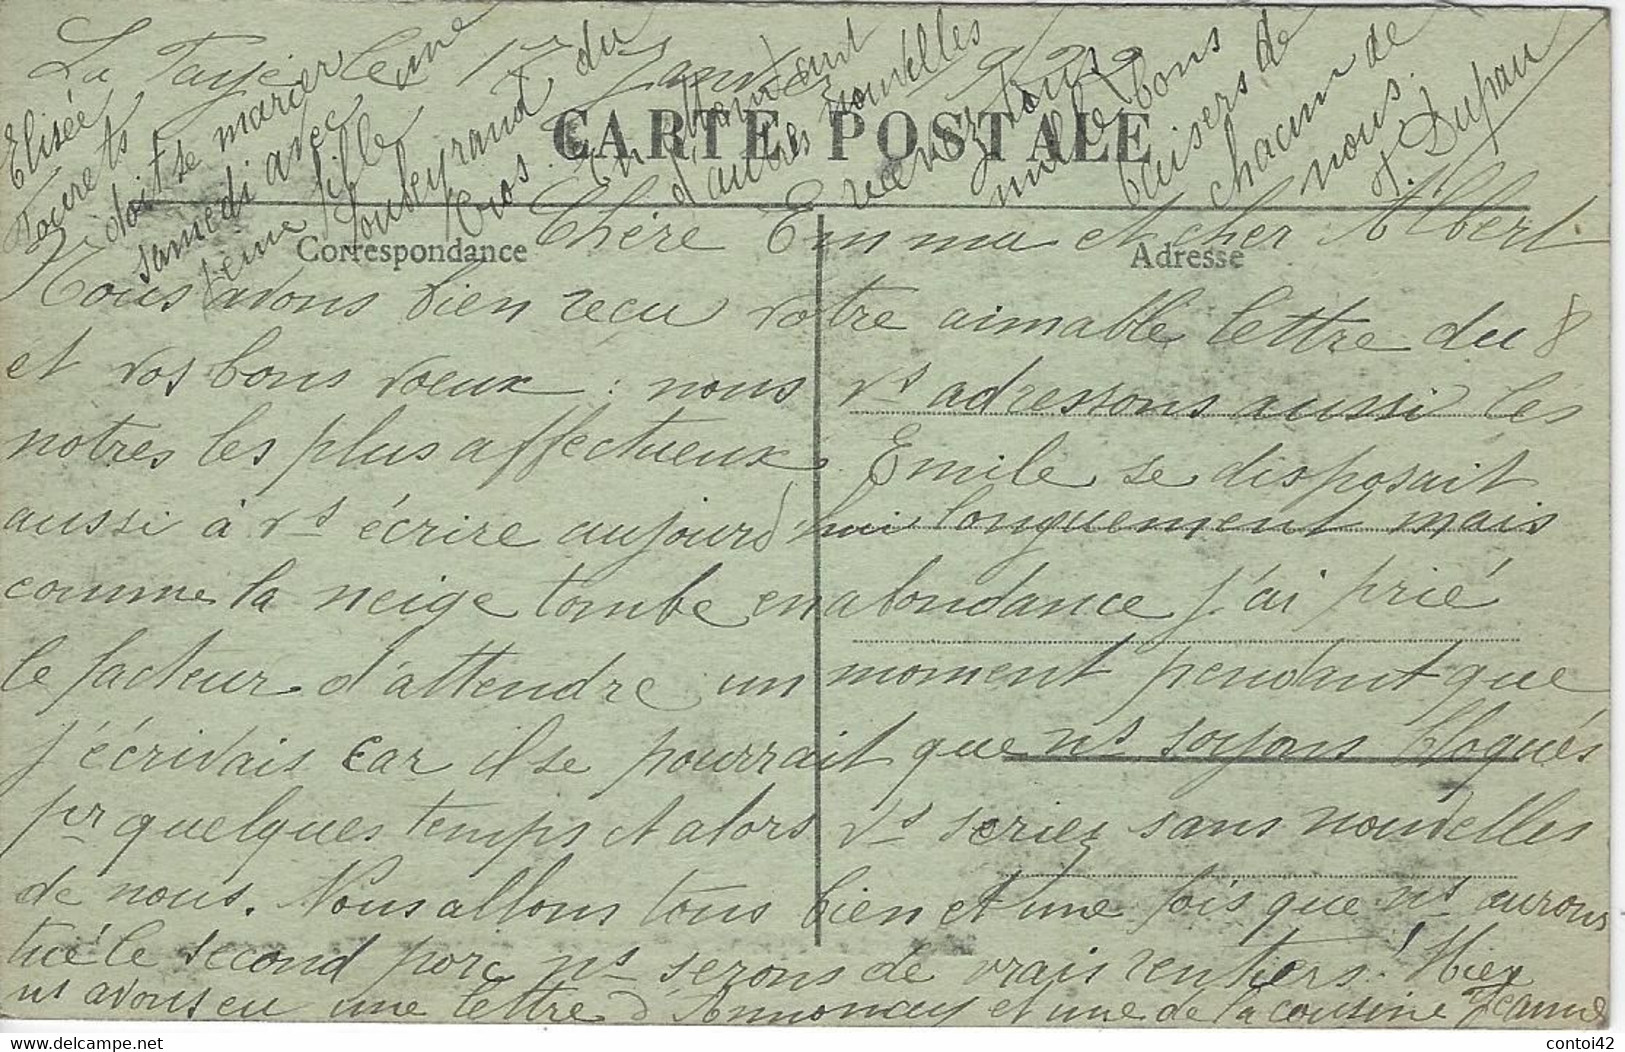 La Faÿe le 1er Janvier 1922
CARTE POSTALE
Correspondance
Adresse
Chère Emma et cher Albert
Nous avons bien reçu votre aimable lettre du 8
et vos bons voeux : nous vs adressons aussi les
notres les plus affectueux. Emile se disposait
aussi à vs écrire aujourd'hui longuement mais
comme la neige tombe en abondance j'ai prié
le facteur d'attendre un moment pendant que
j'écrivais car il se pourrait que ns soyons bloqués
pr quelques temps et alors vs seriez sans nouvelles
de nous. Nous allons tous bien et une fois que ns aurons
tué le second porc ns serons de vrais rentiers! Hier
ns avons eu une lettre d'Annonay et une de la cousine Jeanne
Elisée
Fourets
doit se marier
samedi avec une
jeune fille
Soubeyrand du
Cros. En attendant
d'autres nouvelles
recevez tous
mille bons
baisers de
chacun de
nous.
J. Dupau
contoi42